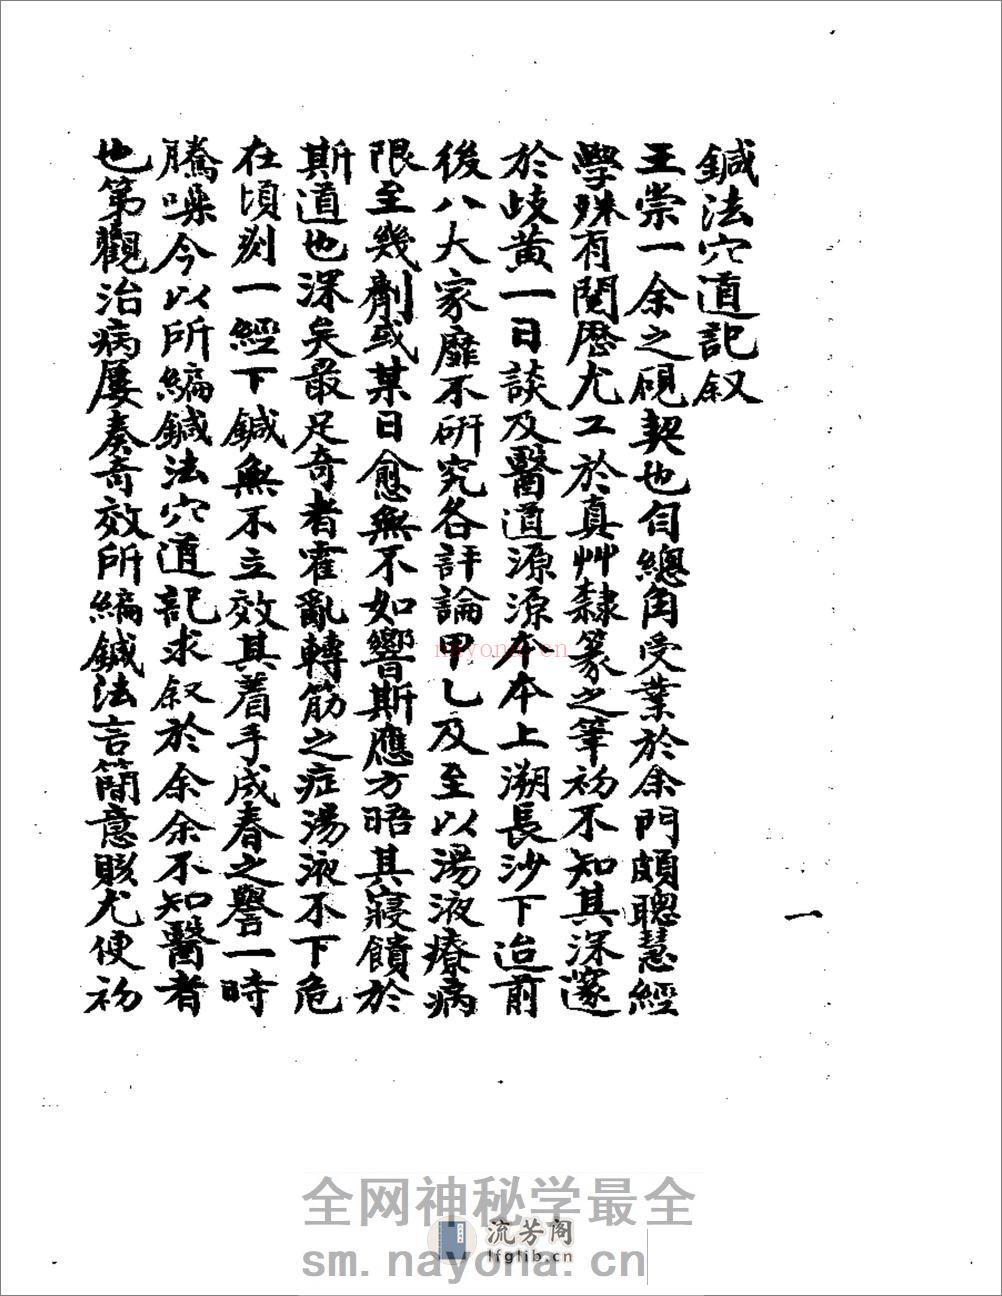 鍼法穴道記叙
王崇一余之硯契也自總角受業於余門頗聰慧經
學殊有閱歷尤工於真艸隸篆之筆初不知其深邃
於歧黄一日談及醫道源源本本上溯長沙下迨前
後八大家靡不研究各評論甲乙及至以湯液療病
限至幾劑或某日愈無不如響斯應方晤其寢饋於
斯道也深矣最足奇者霍亂轉筋之症湯液不下危
在頃刻一經下鍼無不立效其着手成春之譽一時
騰噪今以所編鍼法穴道記求叙於余余不知醫者
也第觀治病屢奏奇效所編鍼法言簡意賅尤便初
一
nayona.cn
全网神秘学最全
流芳阁
lfglib.cn
sm.nayona.cn